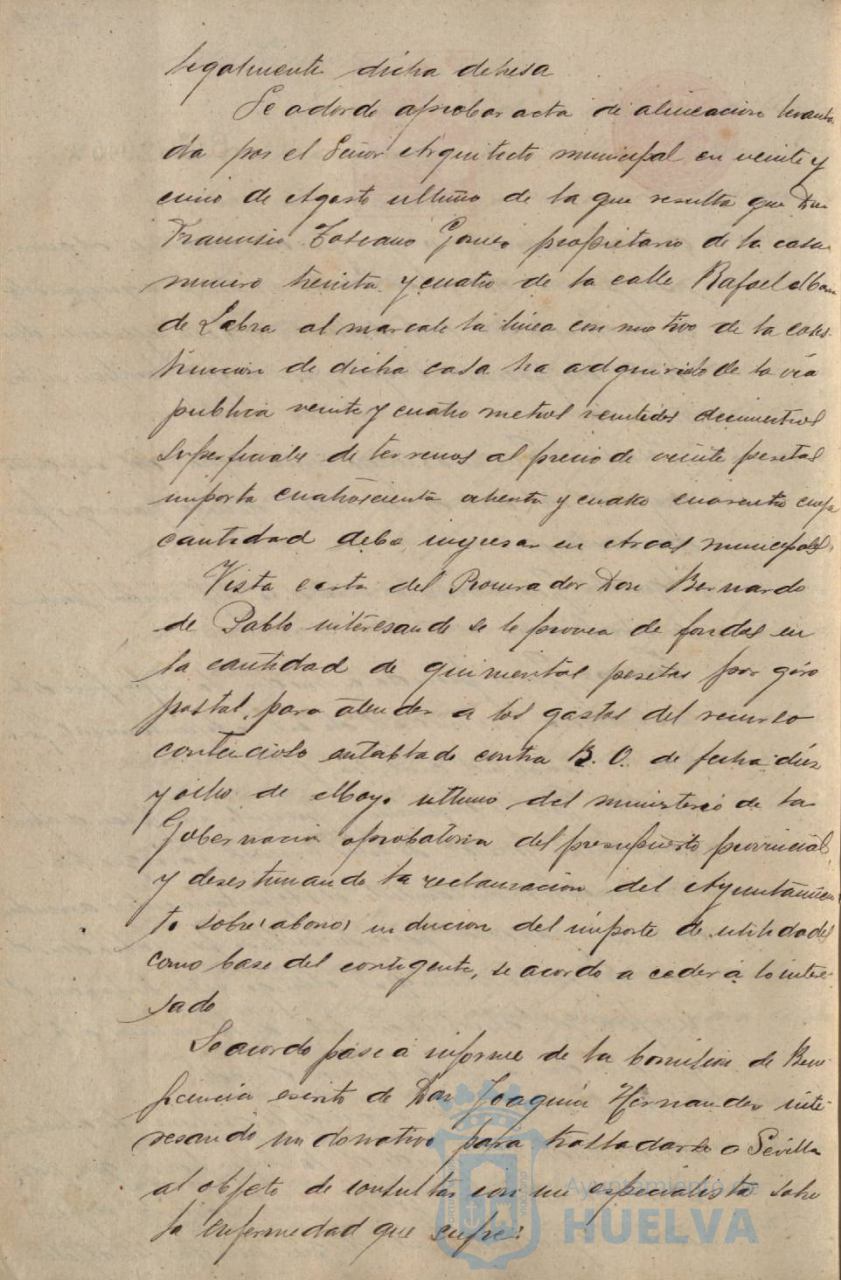 legalmente dicha dehesa
Se acordo aprobar acta de alineacion levanta
da por el Señor Arquitecto municipal en veinte y
cinco de Agosto ultimo de la que resulta que Don
Francisco Toscano Gomez propietario de la casa
numero treinta y cuatro de la calle Rafael
de Labra al marcale la linea con motivo de la cons-
trucción de dicha casa ha adquirido de la via
publica veinte y cuatro metros decimetros
superficiales de terrenos al precio de veinte pesetas
importa cuatrocientas ochenta y cuatro cuarenta cuya
cantidad debe ingresar en Arcas municipales.
Vista carta del Procurador Don Bernardo
de Pablo interesando se le provea de fondos en
la cantidad de quinientas pesetas por giro
postal, para atender a los gastos del recurso
contencioso entablado contra R. O. de fecha diez
y ocho de Mayo ultimo del ministerio de la
Gobernacion aprobatoria del presupuesto provincial,
y desestimando la reclamacion del Ayuntamien
to sobre abono del importe de utilidades
como base del contigente, se acordo acceder a lo intere-
sado
Se acordo pase a informe de la Comision de Bene
ficencia escrito de Don Joaquin Hernandez inte
resando un donativo para trasladarse a Sevilla
al objeto de consultar con un especialista sobre
la enfermedad que sufre.
Ayuntamiento de
HUELVA